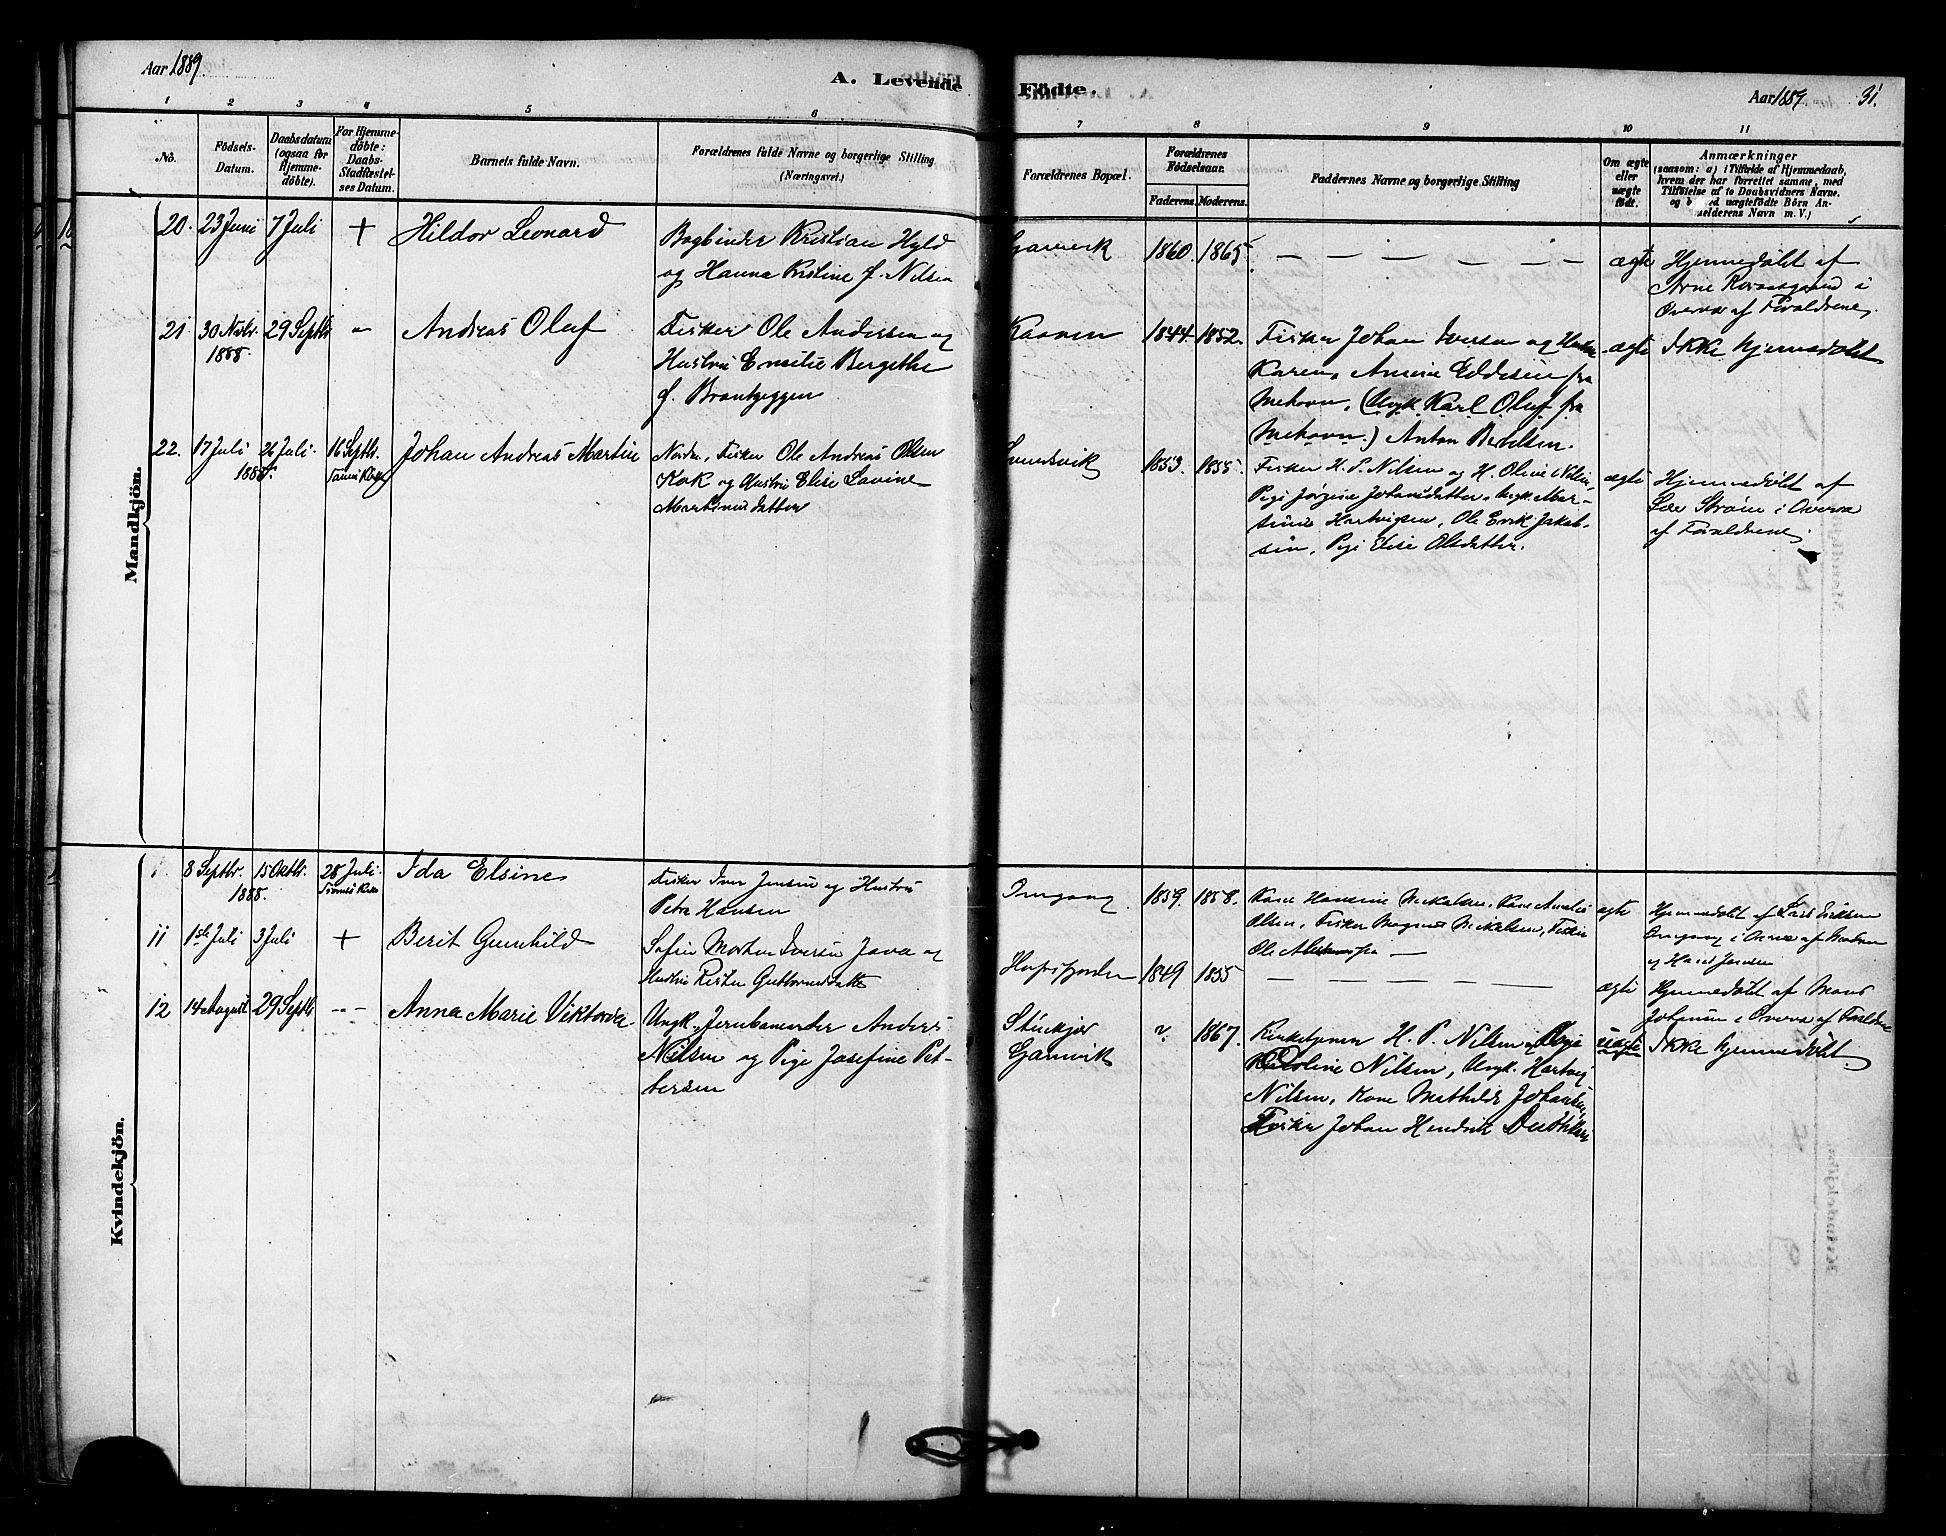 Aar 1889.
A. Levende
Födte.
Aar 1889.
31.
1
2
3
4
5
6
7
8
9
10
11
No.
Födsels-
Datum.
Daabsdatum
(ogsaa for
Hjemme-
döbte).
For Hjemme-
döbte:
Daabs-
Stadfæstel-
ses Datum.
Barnets fulde Navn.
Forældrenes fulde Navne og borgerlige Stilling
(Næringsvei.)
Forældrenes Bopæl.
Forældrenes
Födselsaar.
Faderens.
Moderens.
Faddernes Navne og borgerlige Stilling
Om ægte
eller
uægte
födt.
Anmærkninger
(saasom: a) i Tilfælde af Hjemmedaab,
hvem der har forrettet samme, med
Tilföielse af to Daabsvidners Navne.
og b) ved uægtefödte Börn An-
melderens Navn m. V.)
Mandkjön.
20.
23 Juni
7 Juli
+
Hildor Leonard
Bogbinder Kristian Hyld
og Hanna Kristine f. Nilsen
Gamvik
1860.
1865.
— — — — — —
ægte
Hjemmedøbt af
Arne i
Overvær af Forældrene.
21
30 Novbr.
1888.
29 Septbr
Andreas Oluf
Fisker Ole Andersen og
Hustru Emilie Bergethe
f. Brantzeggen
Kaaven
1844.
1852.
Fisker Johan Iversen og Hustru
Karen Annine Eddesen fra
Mehavn, (Ungk. Karl Oluf fra
Mehavn.) Anton Bertelsen.
ægte
Ikke hjemmedøbt
22.
17 Juli
26 Juli
1888.
16 Septbr.
Johan Andreas Martin
Nordm. Fisker Ole Andreas Olsen
Kok og Hustru Elise Lavine
Martinusdatter
1853.
1855.
Fisker H. P. Nilsen og H. Oline Nilsen,
Pige Jørgine Johansdatter, Ungk. Mar-
Hartvigsen, Ole Erik Jakob-
sen, Pige Elise Olsdatter.
ægte
Hjemmedøbt af
Strøm i Overvær
af Forældrene.
Kvindekjön.
8 Septbr.
1888.
15 Oktbr.
28 Juli
Ida Elsine
Fisker Iver Jensen og Hustru
Petra Hansen
Omgang
1859.
1858.
Kone Hansine Mikalsen, Kone Amalie
Olsen, Fisker Magnus Mikalsen, Fisker
Ole —
ægte
Hjemmedøbt af Lars Eriksen
Omgang i Overvær af
og Hans Jensen
11
1ste Juli
3 Juli
+
Berit Gunhild
Søfin Morten Iversen Java og
Hustru Kirsten Guttormsdatter
Hopsfjorden
1849
1855
— — — — —
ægte
Hjemmedøbt af Mons
Johansen i Overvær af Forældrene
12
14 August
29 Septbr
- -
Anna Marie Viktoria
Ungk. Jernbanearbr Anders
Nilsen og Pige Josefine Pet-
tersen
Stenkjær
Gamvik
?
1867.
Kirketjener H. P. Nilsen og Pige
Karoline Nilsen, Ungk. Hartvig
Nilsen, Kone Mathilde Johansen,
Fisker Johan Hendrik
uægte
Ikke hjemmedøbt